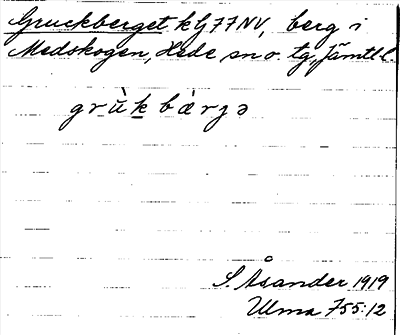 Gruckberget klj 77 NV, berg i
Medskogen, Hede sn o. tg, Jämtl l.
grùk bàrzə
S. Åsander 1919
Ulma 755:12